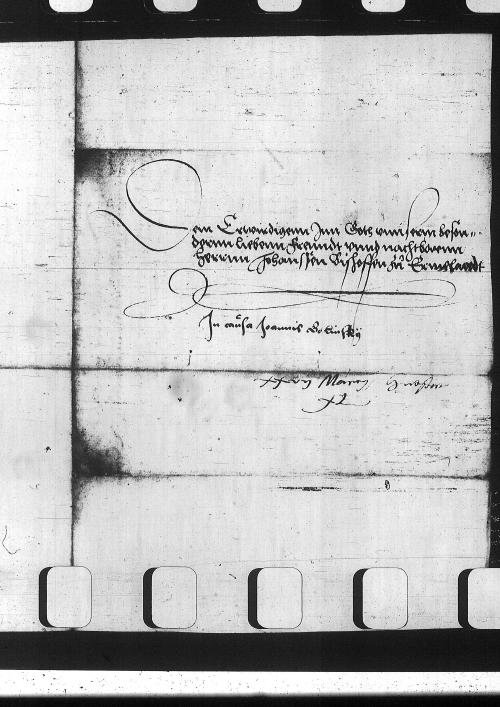 Dem Erwirdigenn Inn Goth unnserm beson-
dernn liebenn freundt unnd nachtbarenn
herrnn Johanssen Bischoffen zu Ermelandt
In causa Joannis
XXIIII Marcij
XL